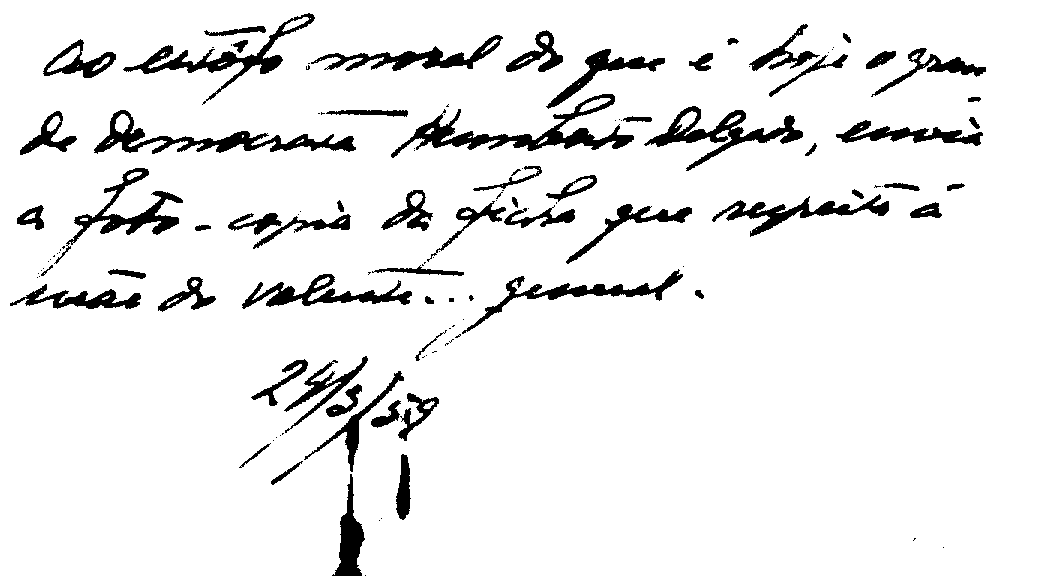 ao estôfo moral do que é hoje o gran-
de democrata Humberto Delgado, envia
a foto-copia da ficha que respeita á
mãe do valente... general.
24/3/59